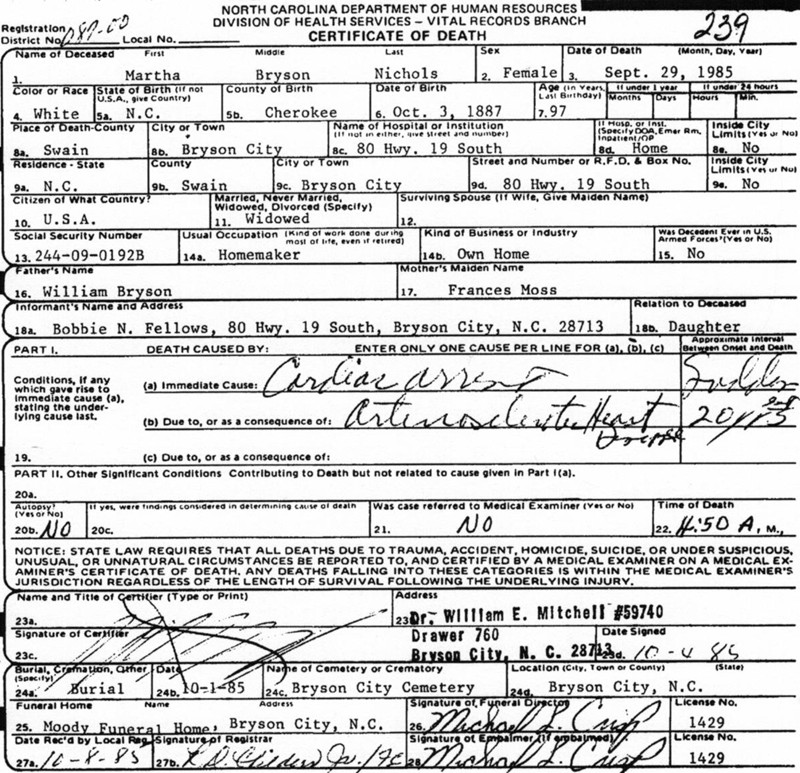 NORTH CAROLINA DEPARTMENT OF HUMAN RESOURCES
DIVISION OF HEALTH SERVICES – VITAL RECORDS BRANCH
CERTIFICATE OF DEATH
239
Registration District No. 087-00 Local No.
Name of Deceased First Middle Last Sex Date of Death (Month, Day, Year)
1. Martha Bryson Nichols 2. Female 3. Sept. 29, 1985
Color or Race State of Birth (If not U.S.A., give Country) County of Birth Date of Birth Age (In Years, Last Birthday) If under 1 year Months Days If under 24 hours Hours Min.
4. White 5a. N.C. 5b. Cherokee 6. Oct. 3, 1887 7. 97
Place of Death-County City or Town Name of Hospital or Institution (If not in either, give street and number) If Hosp. or Inst. (Specify DOA, Emer Rm, Inpatient/OP Inside City Limits (Yes or No)
8a. Swain 8b. Bryson City 8c. 80 Hwy. 19 South 8d. Home 8e. No
Residence - State County City or Town Street and Number or R.F.D. & Box No. Inside City Limits (Yes or No)
9a. N.C. 9b. Swain 9c. Bryson City 9d. 80 Hwy. 19 South 9e. No
Citizen of What Country? Married, Never Married, Widowed, Divorced (Specify) Surviving Spouse (If Wife, Give Maiden Name)
10. U.S.A. 11. Widowed 12.
Social Security Number Usual Occupation (Kind of work done during most of life, even if retired) Kind of Business or Industry Was Decedent Ever in U.S. Armed Forces? (Yes or No)
13. 244-09-0192B 14a. Homemaker 14b. Own Home 15. No
Father's Name Mother's Maiden Name
16. William Bryson 17. Frances Moss
Informant's Name and Address Relation to Deceased
18a. Bobbie N. Fellows, 80 Hwy. 19 South, Bryson City, N.C. 28713 18b. Daughter
PART I. DEATH CAUSED BY: ENTER ONLY ONE CAUSE PER LINE FOR (a), (b), (c) Approximate Interval Between Onset and Death
Conditions, if any which gave rise to immediate cause (a), stating the underlying cause last.
(a) Immediate Cause: Cardiac arrest Sudden
(b) Due to, or as a consequence of: Heart Disease 20 yrs
19. (c) Due to, or as a consequence of:
PART II. Other Significant Conditions Contributing to Death but not related to cause given in Part I(a).
20a.
Autopsy? (Yes or No) If yes, were findings considered in determining cause of death Was case referred to Medical Examiner (Yes or No) Time of Death
20b. NO 20c. 21. NO 22. 4:50 A. M.,
NOTICE: STATE LAW REQUIRES THAT ALL DEATHS DUE TO TRAUMA, ACCIDENT, HOMICIDE, SUICIDE, OR UNDER SUSPICIOUS,
UNUSUAL, OR UNNATURAL CIRCUMSTANCES BE REPORTED TO, AND CERTIFIED BY A MEDICAL EXAMINER ON A MEDICAL EX-
AMINER'S CERTIFICATE OF DEATH. ANY DEATHS FALLING INTO THESE CATEGORIES IS WITHIN THE MEDICAL EXAMINER'S
JURISDICTION REGARDLESS OF THE LENGTH OF SURVIVAL FOLLOWING THE UNDERLYING INJURY.
Name and Title of Certifier (Type or Print) Address
23a. 23b. Dr. William E. Mitchell #59740
Signature of Certifier Drawer 760 Date Signed
23c. Bryson City, N. C. 28713 23d. 10-4 85
Burial, Cremation, Other (Specify) Date Name of Cemetery or Crematory Location (City, Town or County) (State)
24a. Burial 24b. 10-1-85 24c. Bryson City Cemetery 24d. Bryson City, N.C.
Funeral Home Name Address Signature of Funeral Director License No.
25. Moody Funeral Home, Bryson City, N.C. 26. Michael L. Crisp 1429
Date Rec'd by Local Reg. Signature of Registrar Signature of Embalmer (If embalmed) License No.
27a. 10-8-85 27b. 28 Michael L. Crisp 1429